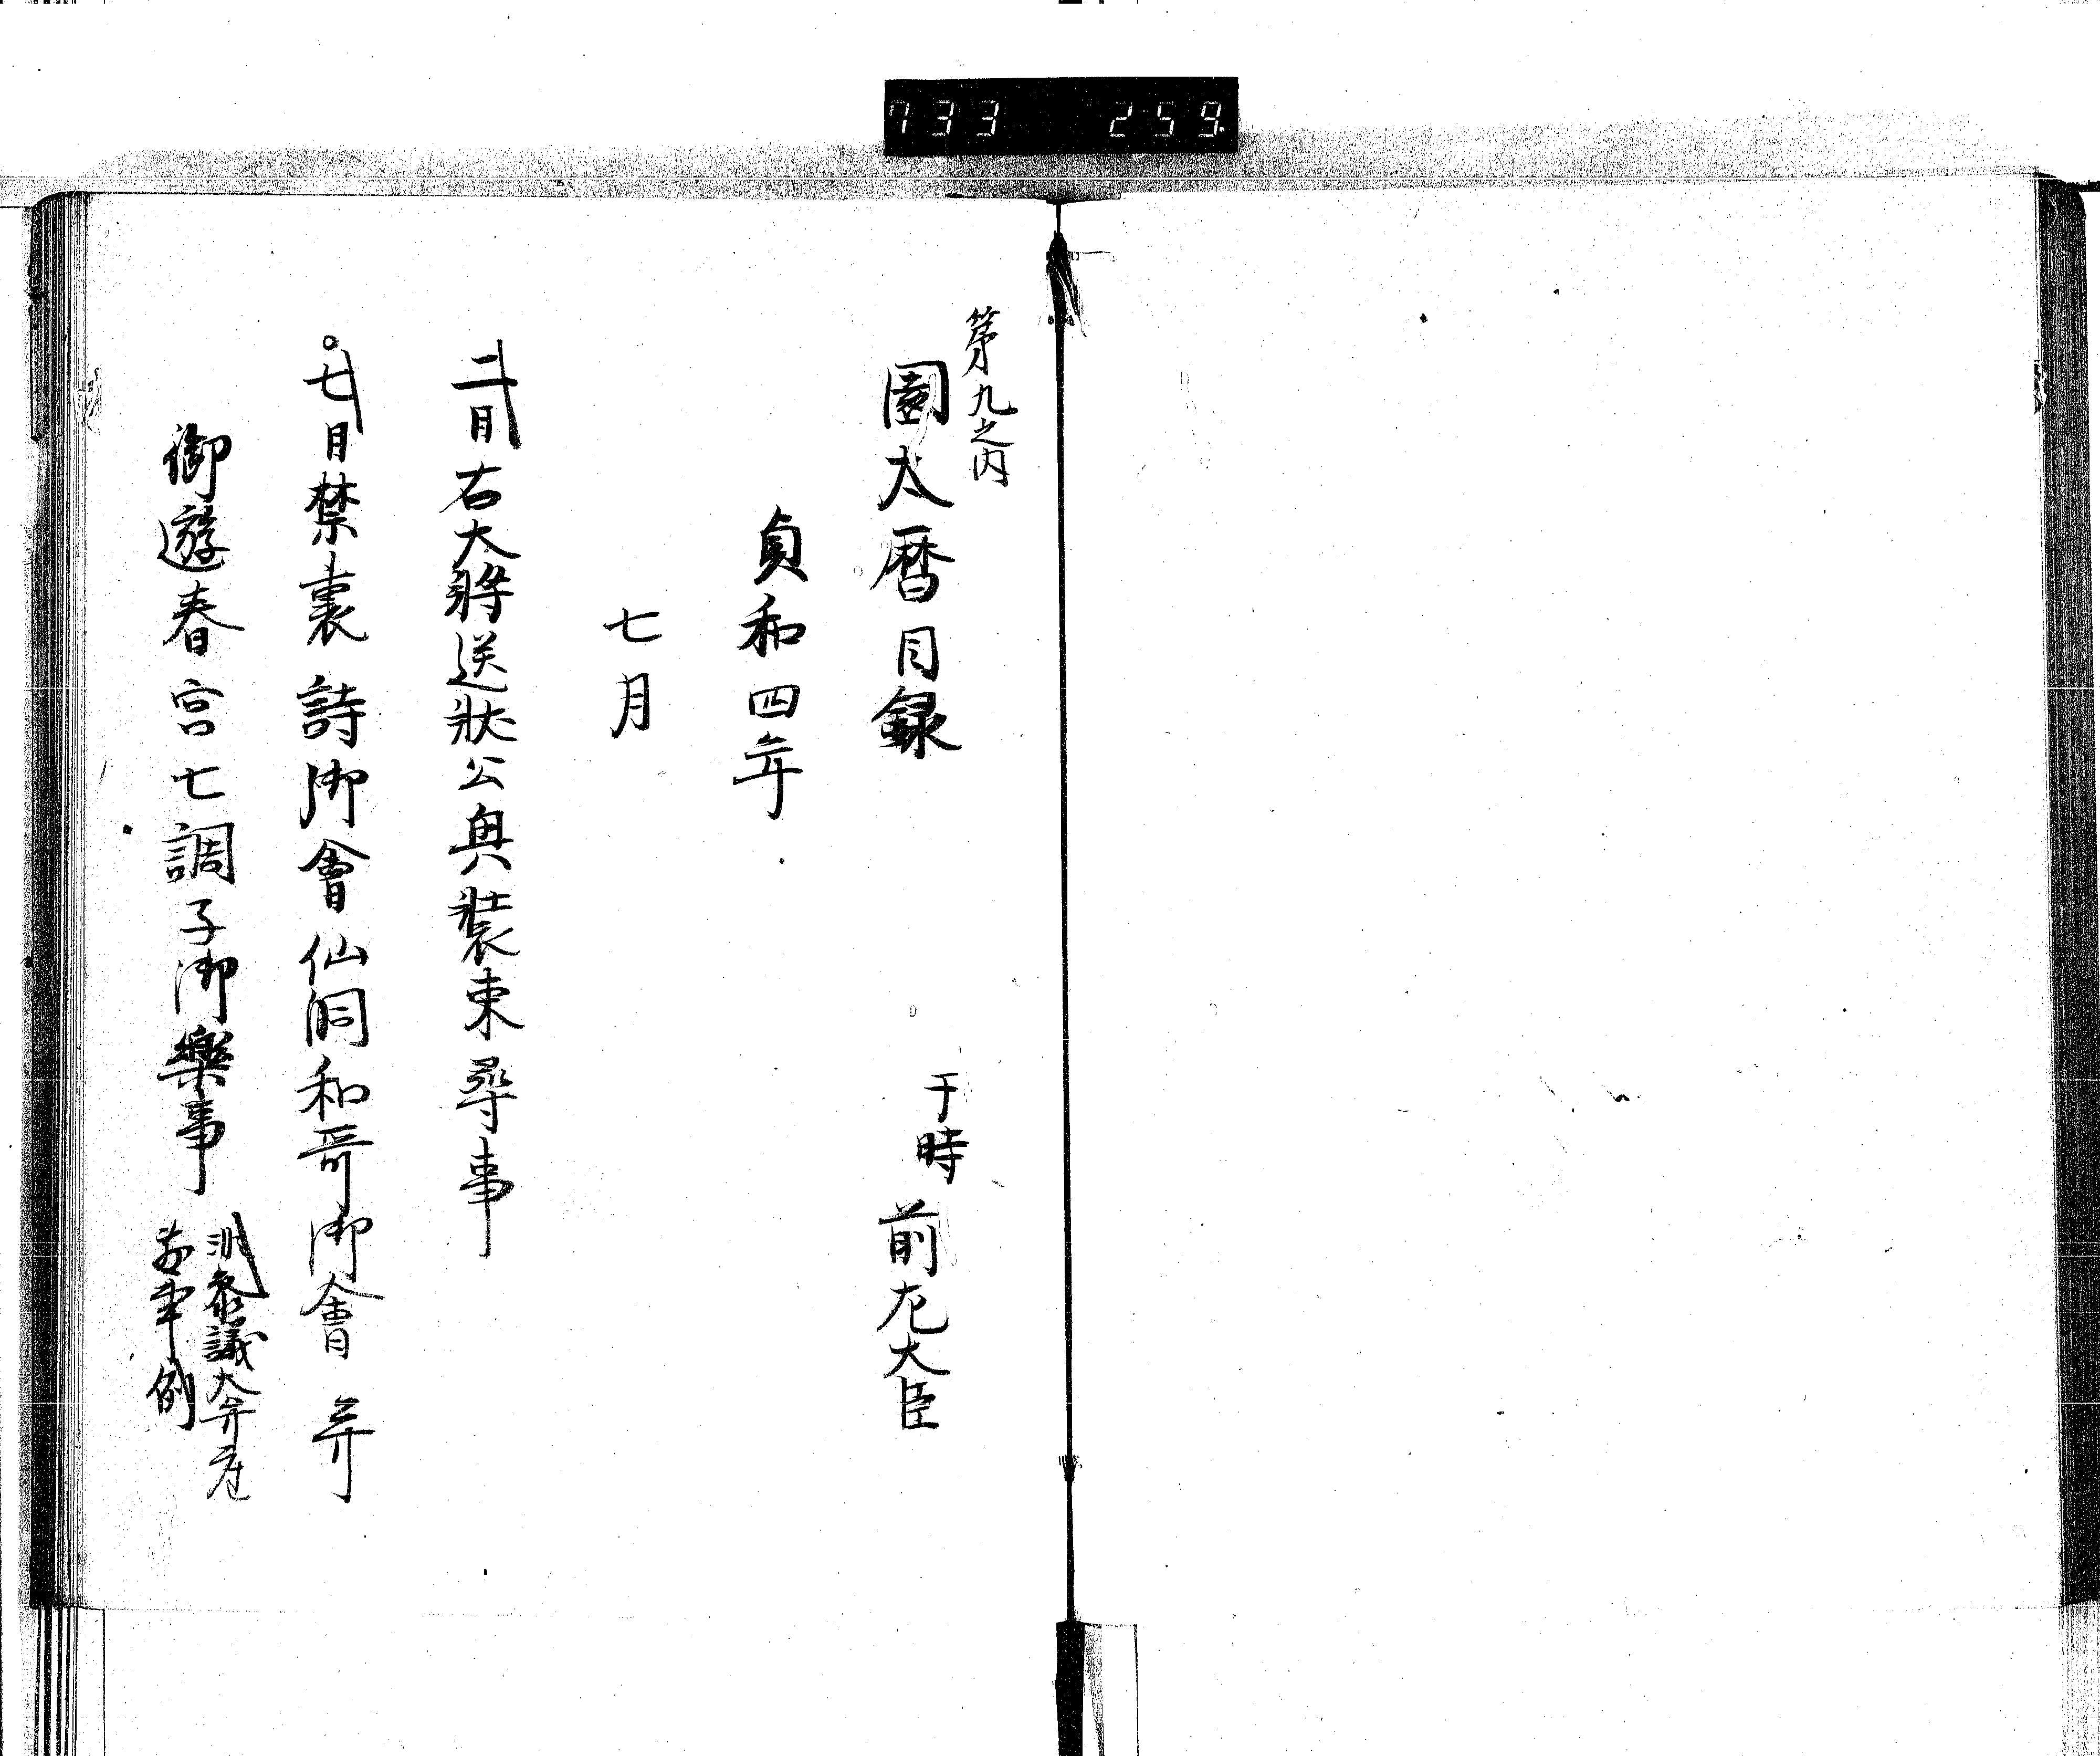 733 259
第九之内
園太暦目録 于時前左大臣
貞和四年
七月
二日右大将送状公奥装束尋事
七日禁裏詩御會仙洞和哥御會并
御遊春宮七調子御樂事
参議大弁座
例